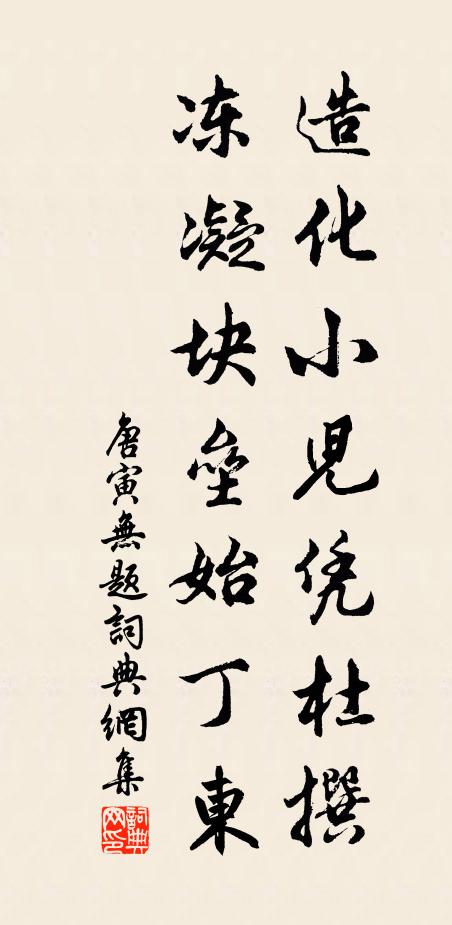 造化小児凭杜撰
冻凝块垒始丁東
唐寅無题詞典網集
詞典网印